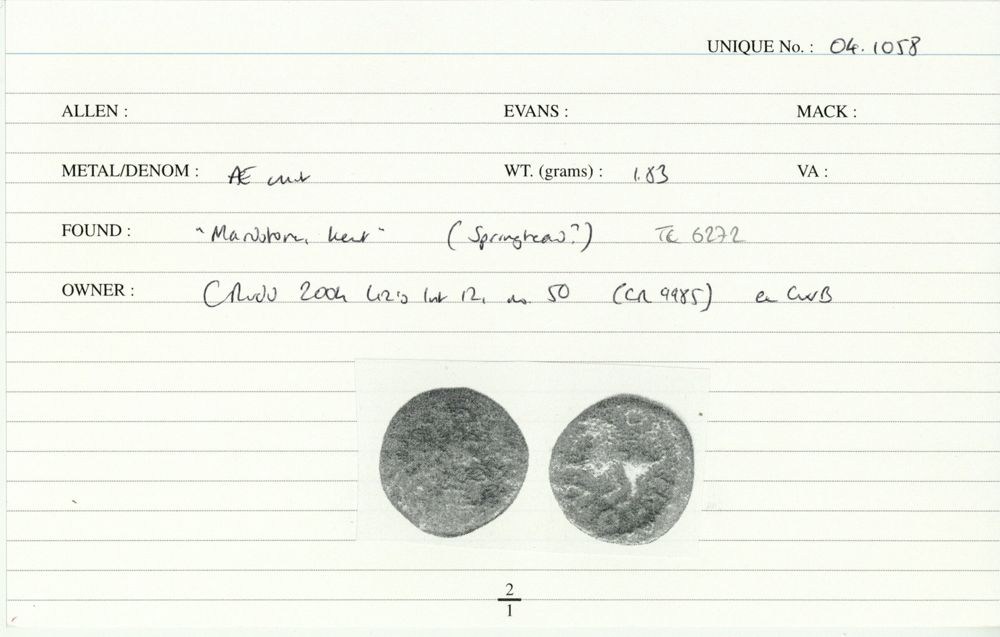 UNIQUE No. : 04.1058
ALLEN : EVANS : MACK :
METAL/DENOM : Æ unit WT. (grams) : 1.83 VA :
FOUND : "Maidstone, Kent" (Springhead?) TQ 6272
OWNER : 2004 list 12, no. 50 (CR 9985) ex
2
1